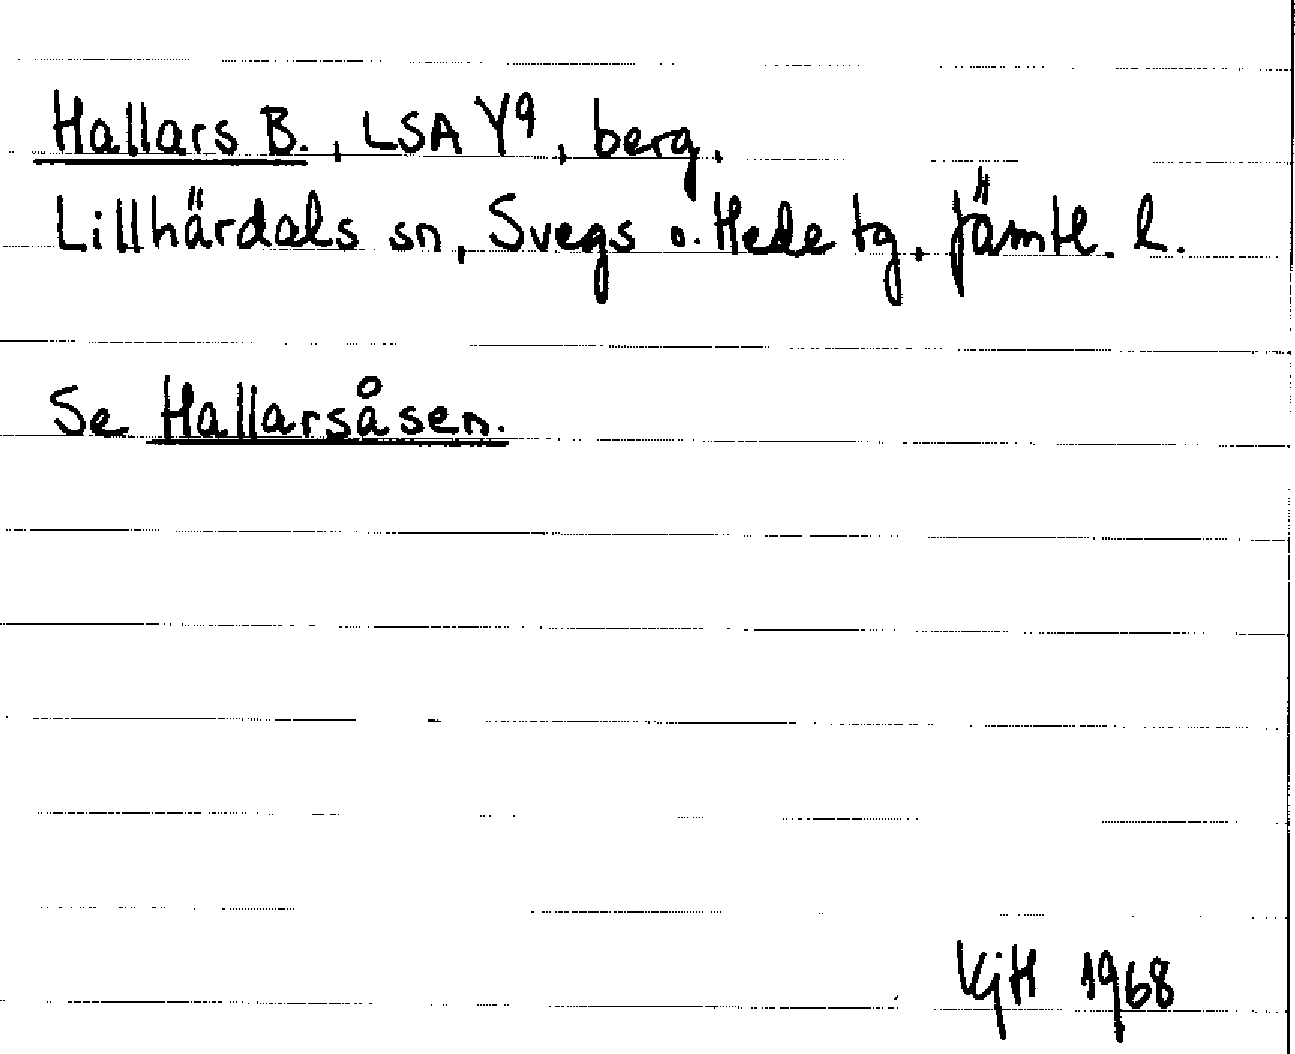 Hallars B., LSA Y9, berg.
Lillhärdals sn, Svegs o. Hede tg, Jämtl. l.
Se Hallarsåsen.
VjH 1968